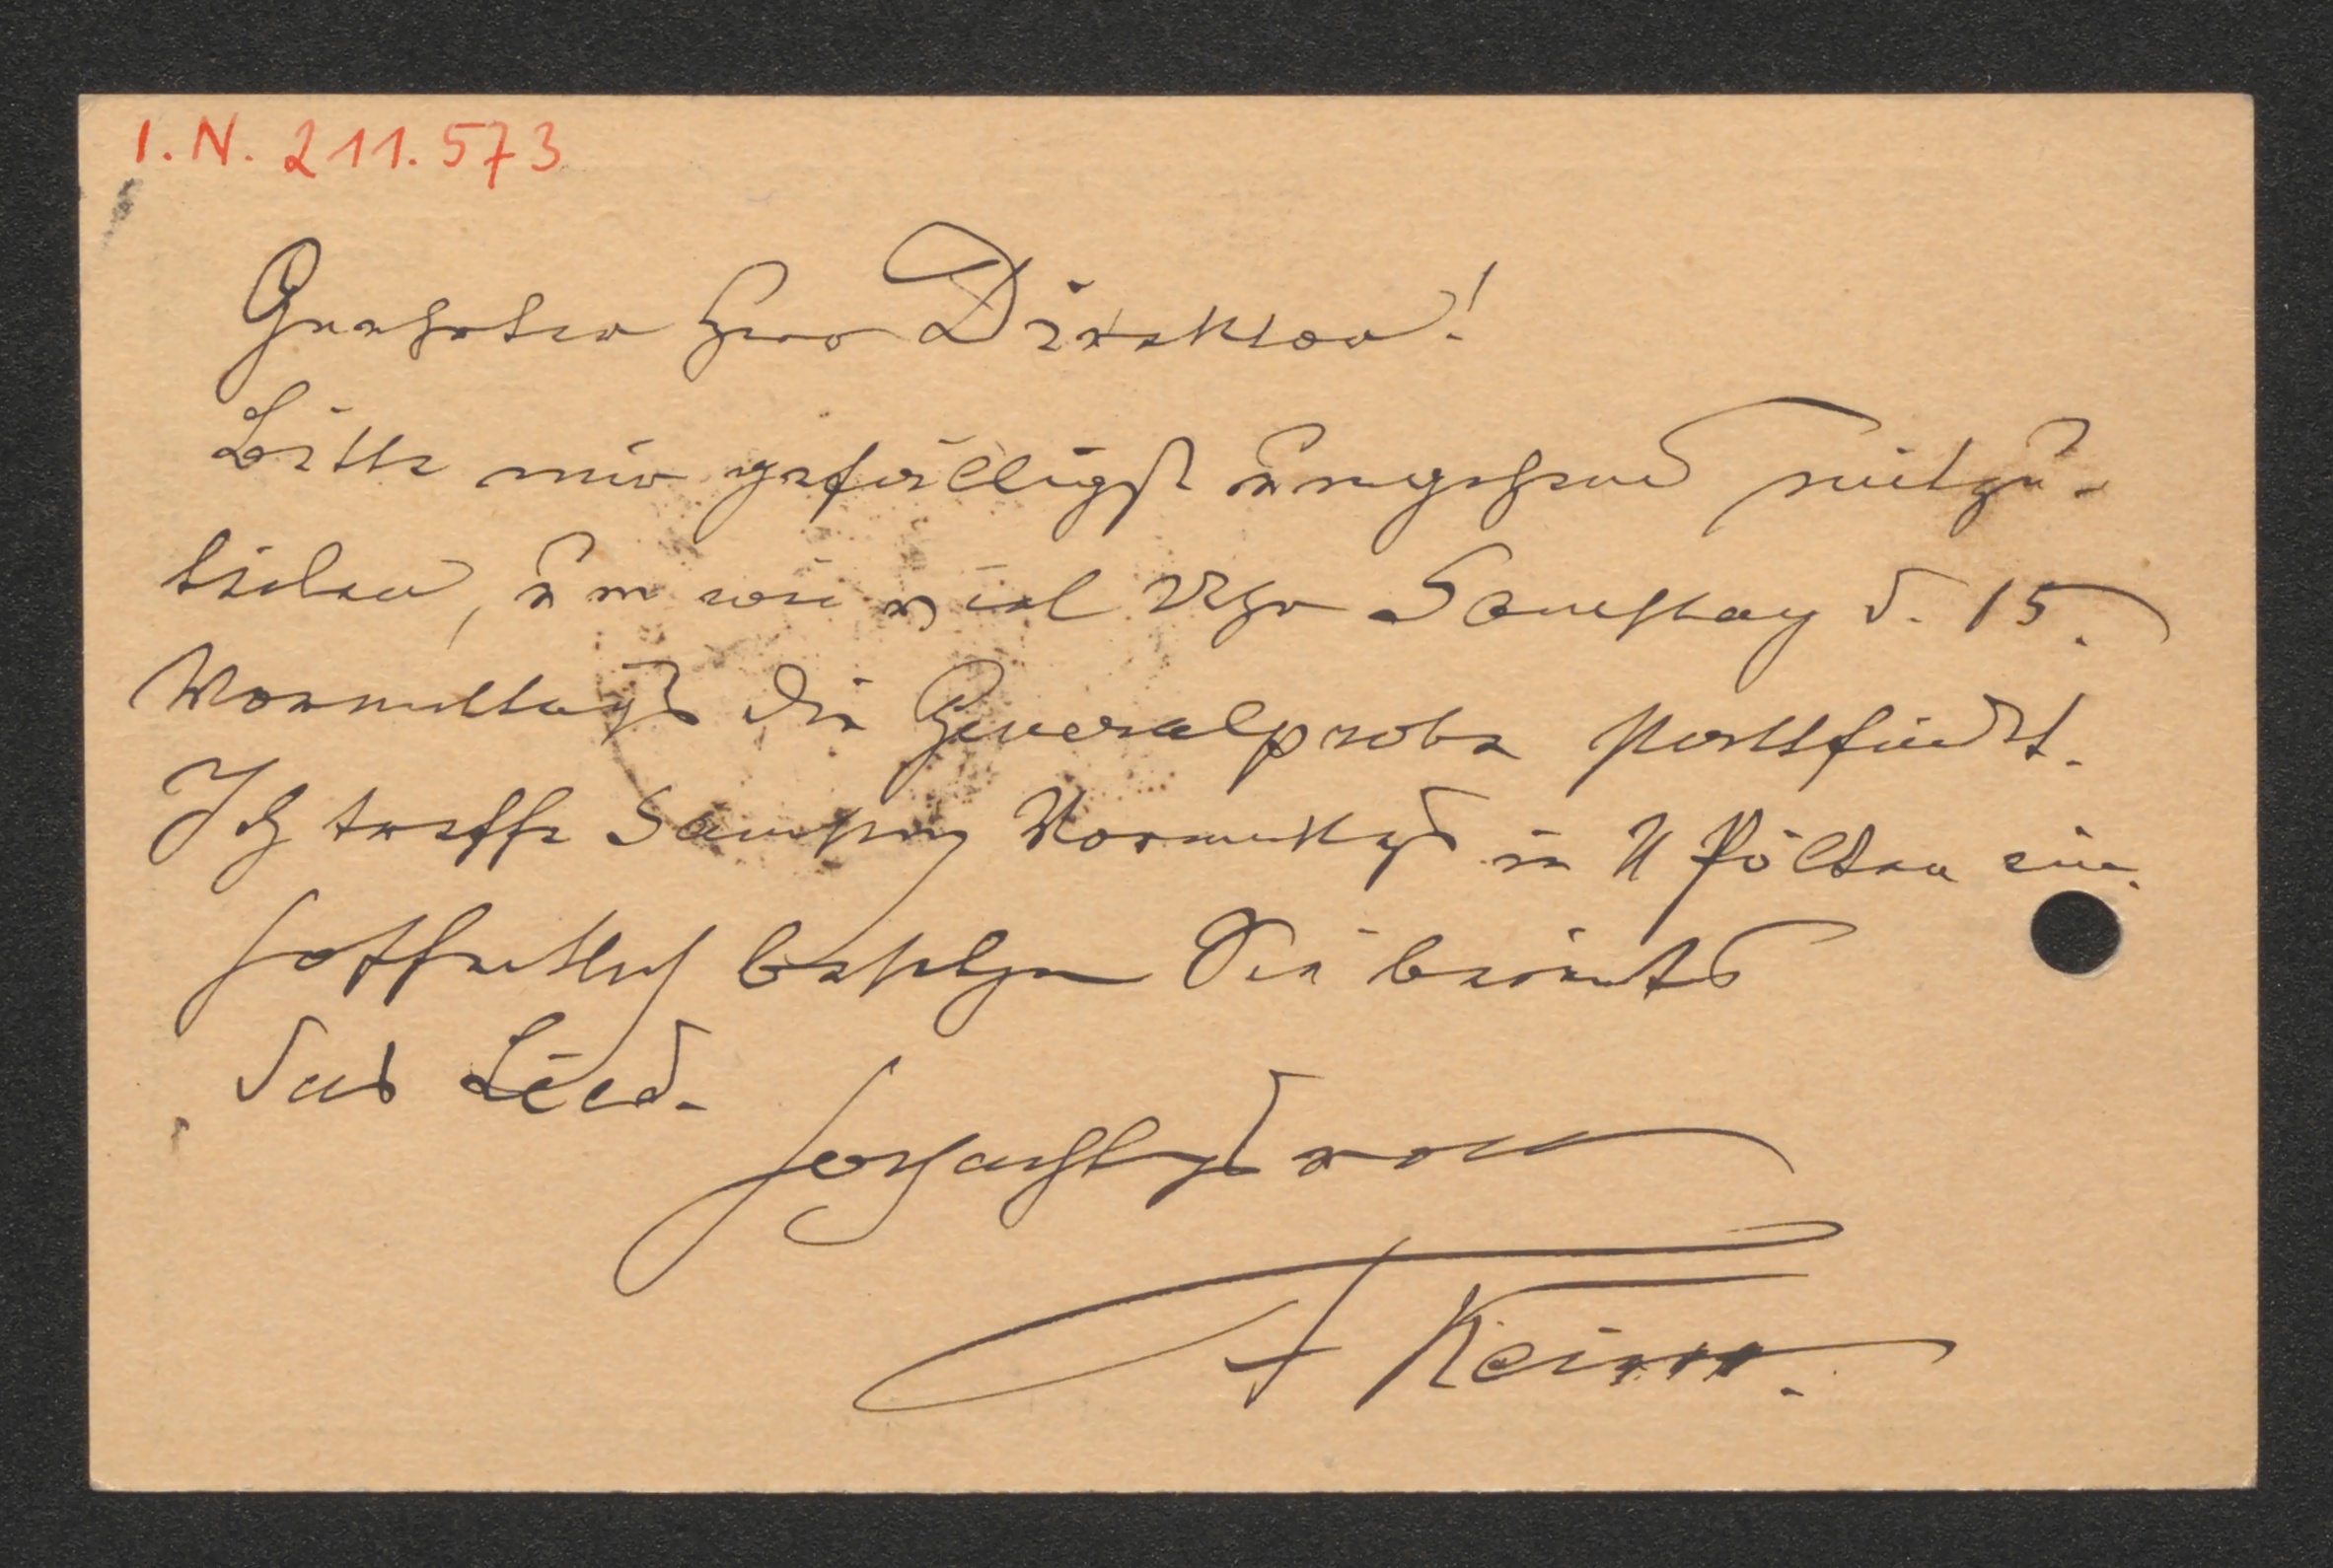 I.N. 211.573
Geehrter Herr Direktor!
Bitte mir gefälligst umgehend mitzu-
teilen, um wie viel Uhr Samstag d. 15.
Vormittags die Generalprobe stattfindet.
Ich treffe Samstag Vormittags in St Pölten ein.
Hoffentlich besitzen Sie bereits
das Lied.
Hochachtungsvoll
F Keim.